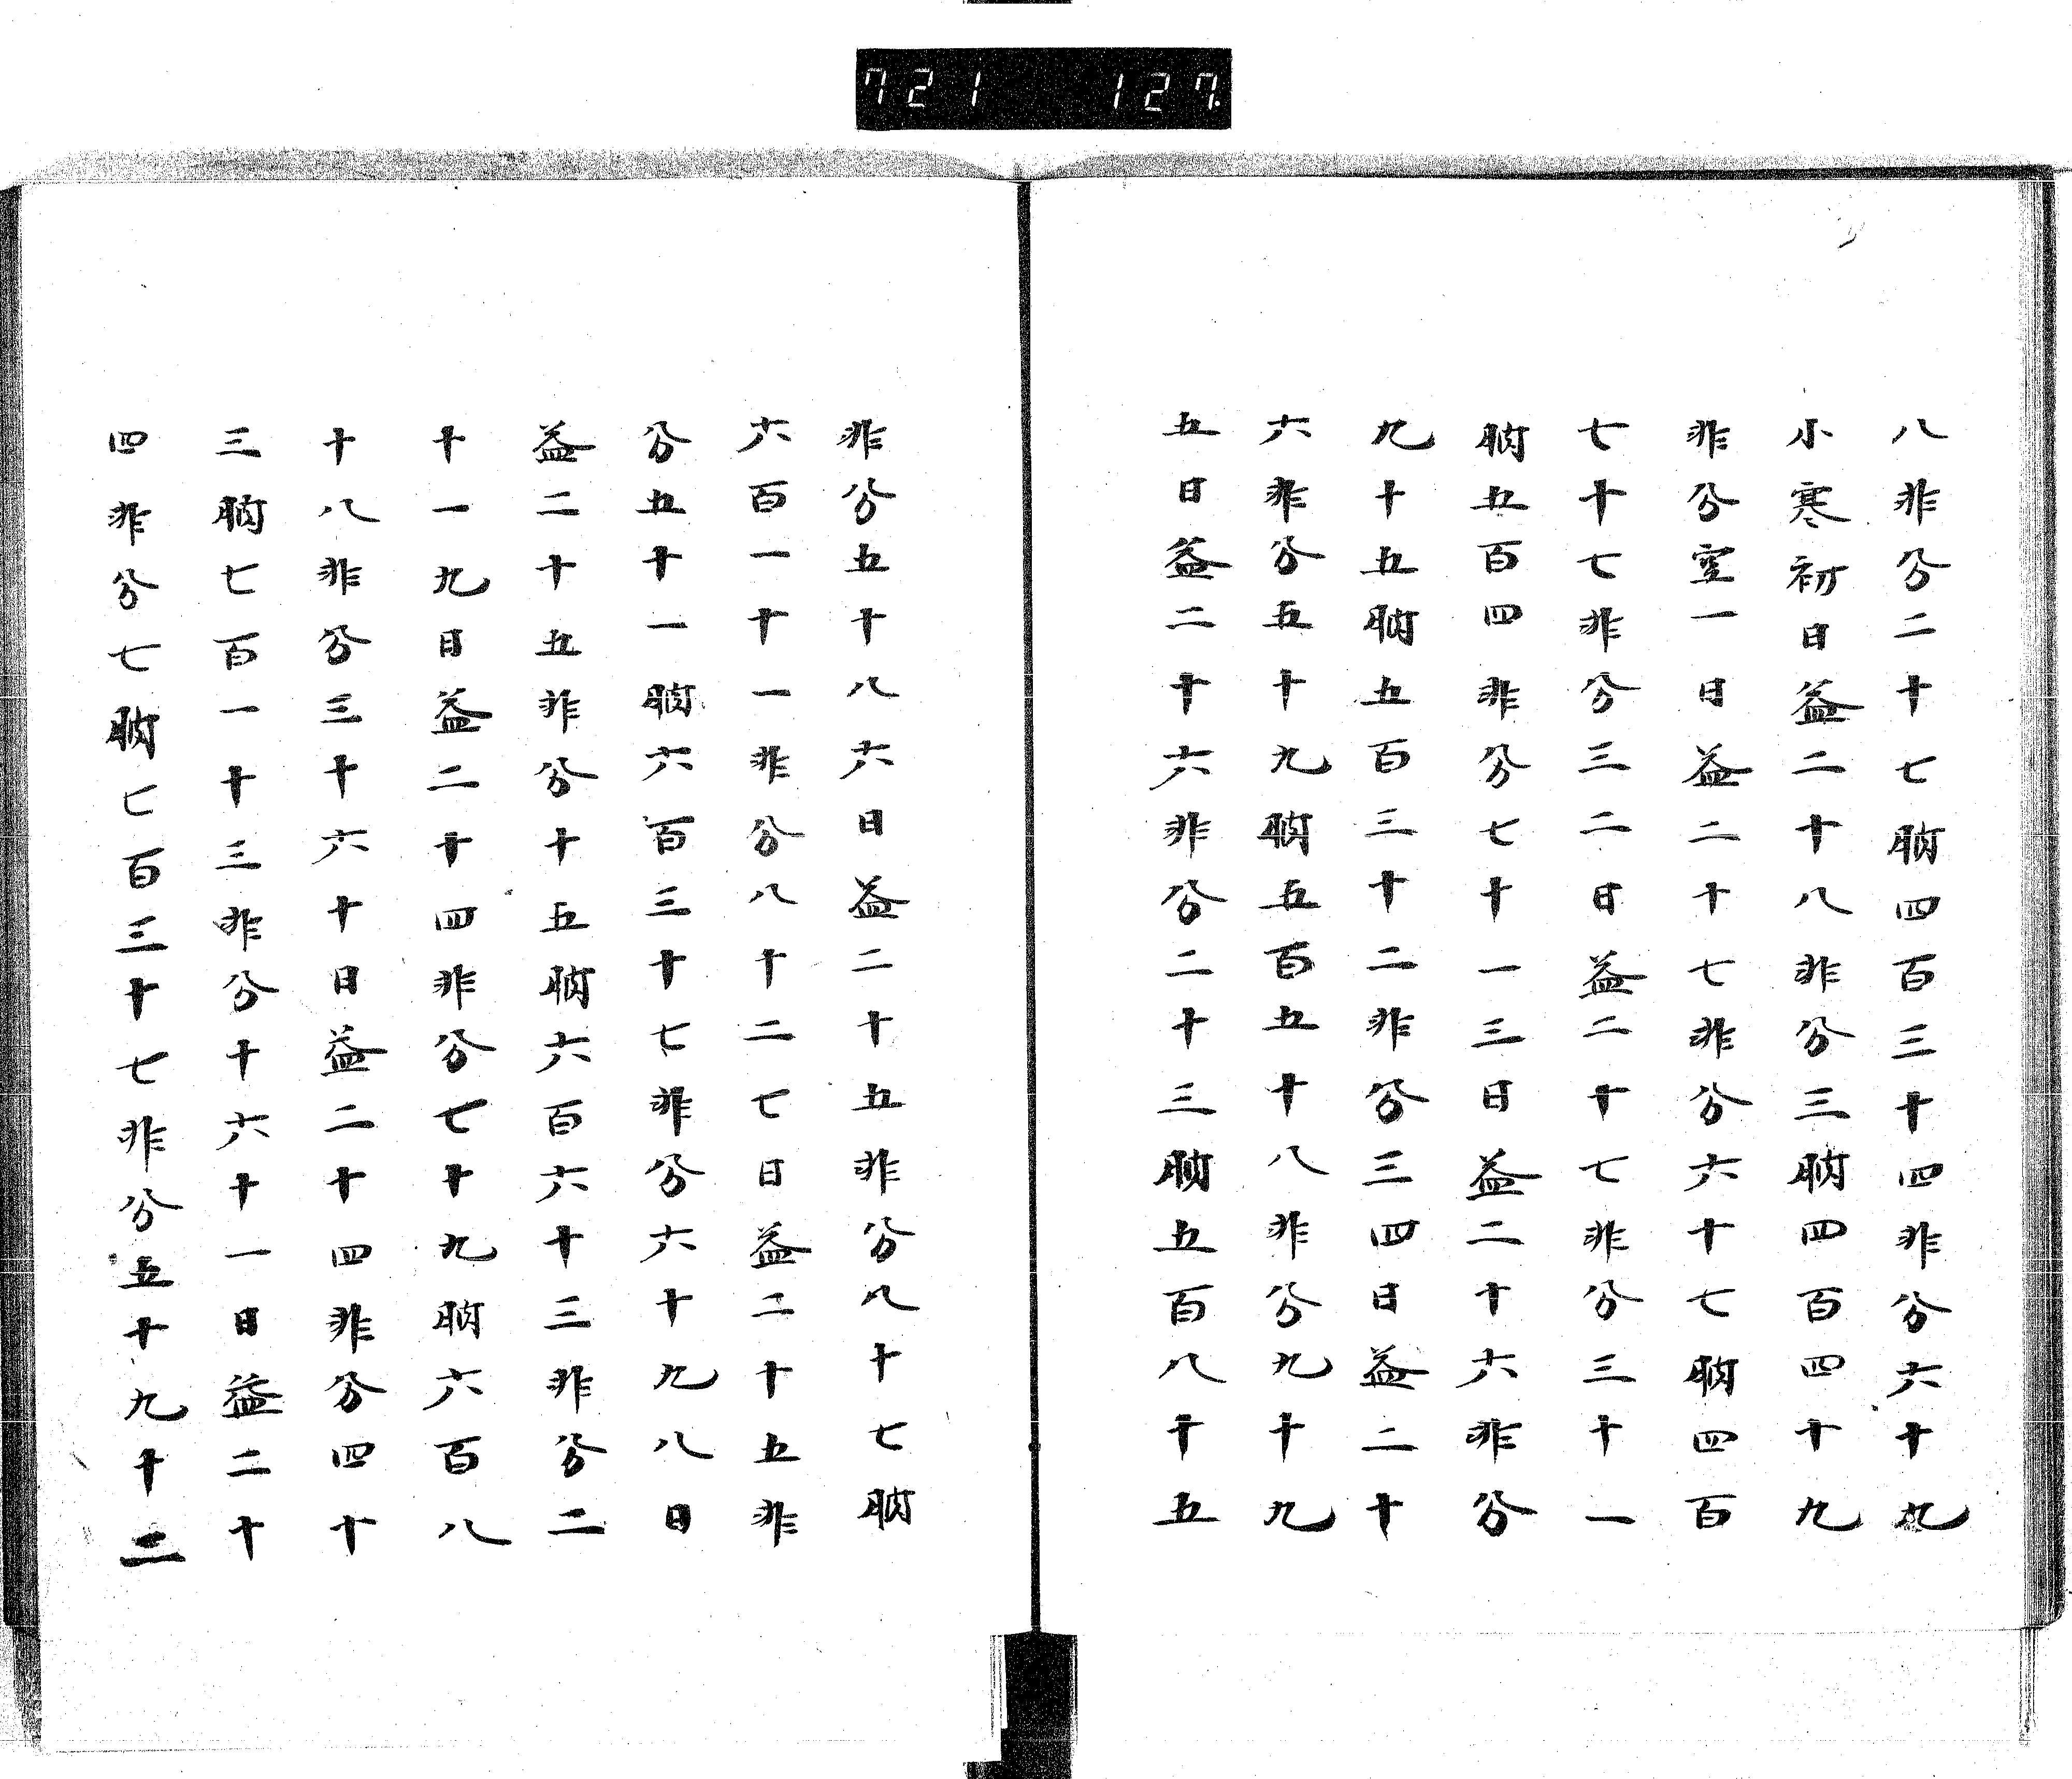 721 127.
八非分二十七朒四百三十四非分六十九
小寒初日益二十八非分三朒四百四十九
非分空一日益二十七非分六十七朒四百
七十七非分三二日益二十七非分三十一
朒五百四非分七十一三日益二十六非分
九十五朒五百三十二非分三四日益二十
六非分五十九朒五百五十八非分九十九
五日益二十六非分二十三朒五百八十五
非分五十八六日益二十五非分八十七朒
六百一十一非分八十二七日益二十五非
分五十一朒六百三十七非分六十九八日
益二十五非分十五朒六百六十三非分二
十一九日益二十四非分七十九朒六百八
十八非分三十六十日益二十四非分四十
三朒七百一十三非分十六十一日益二十
四非分七朒七百三十七非分五十九十二